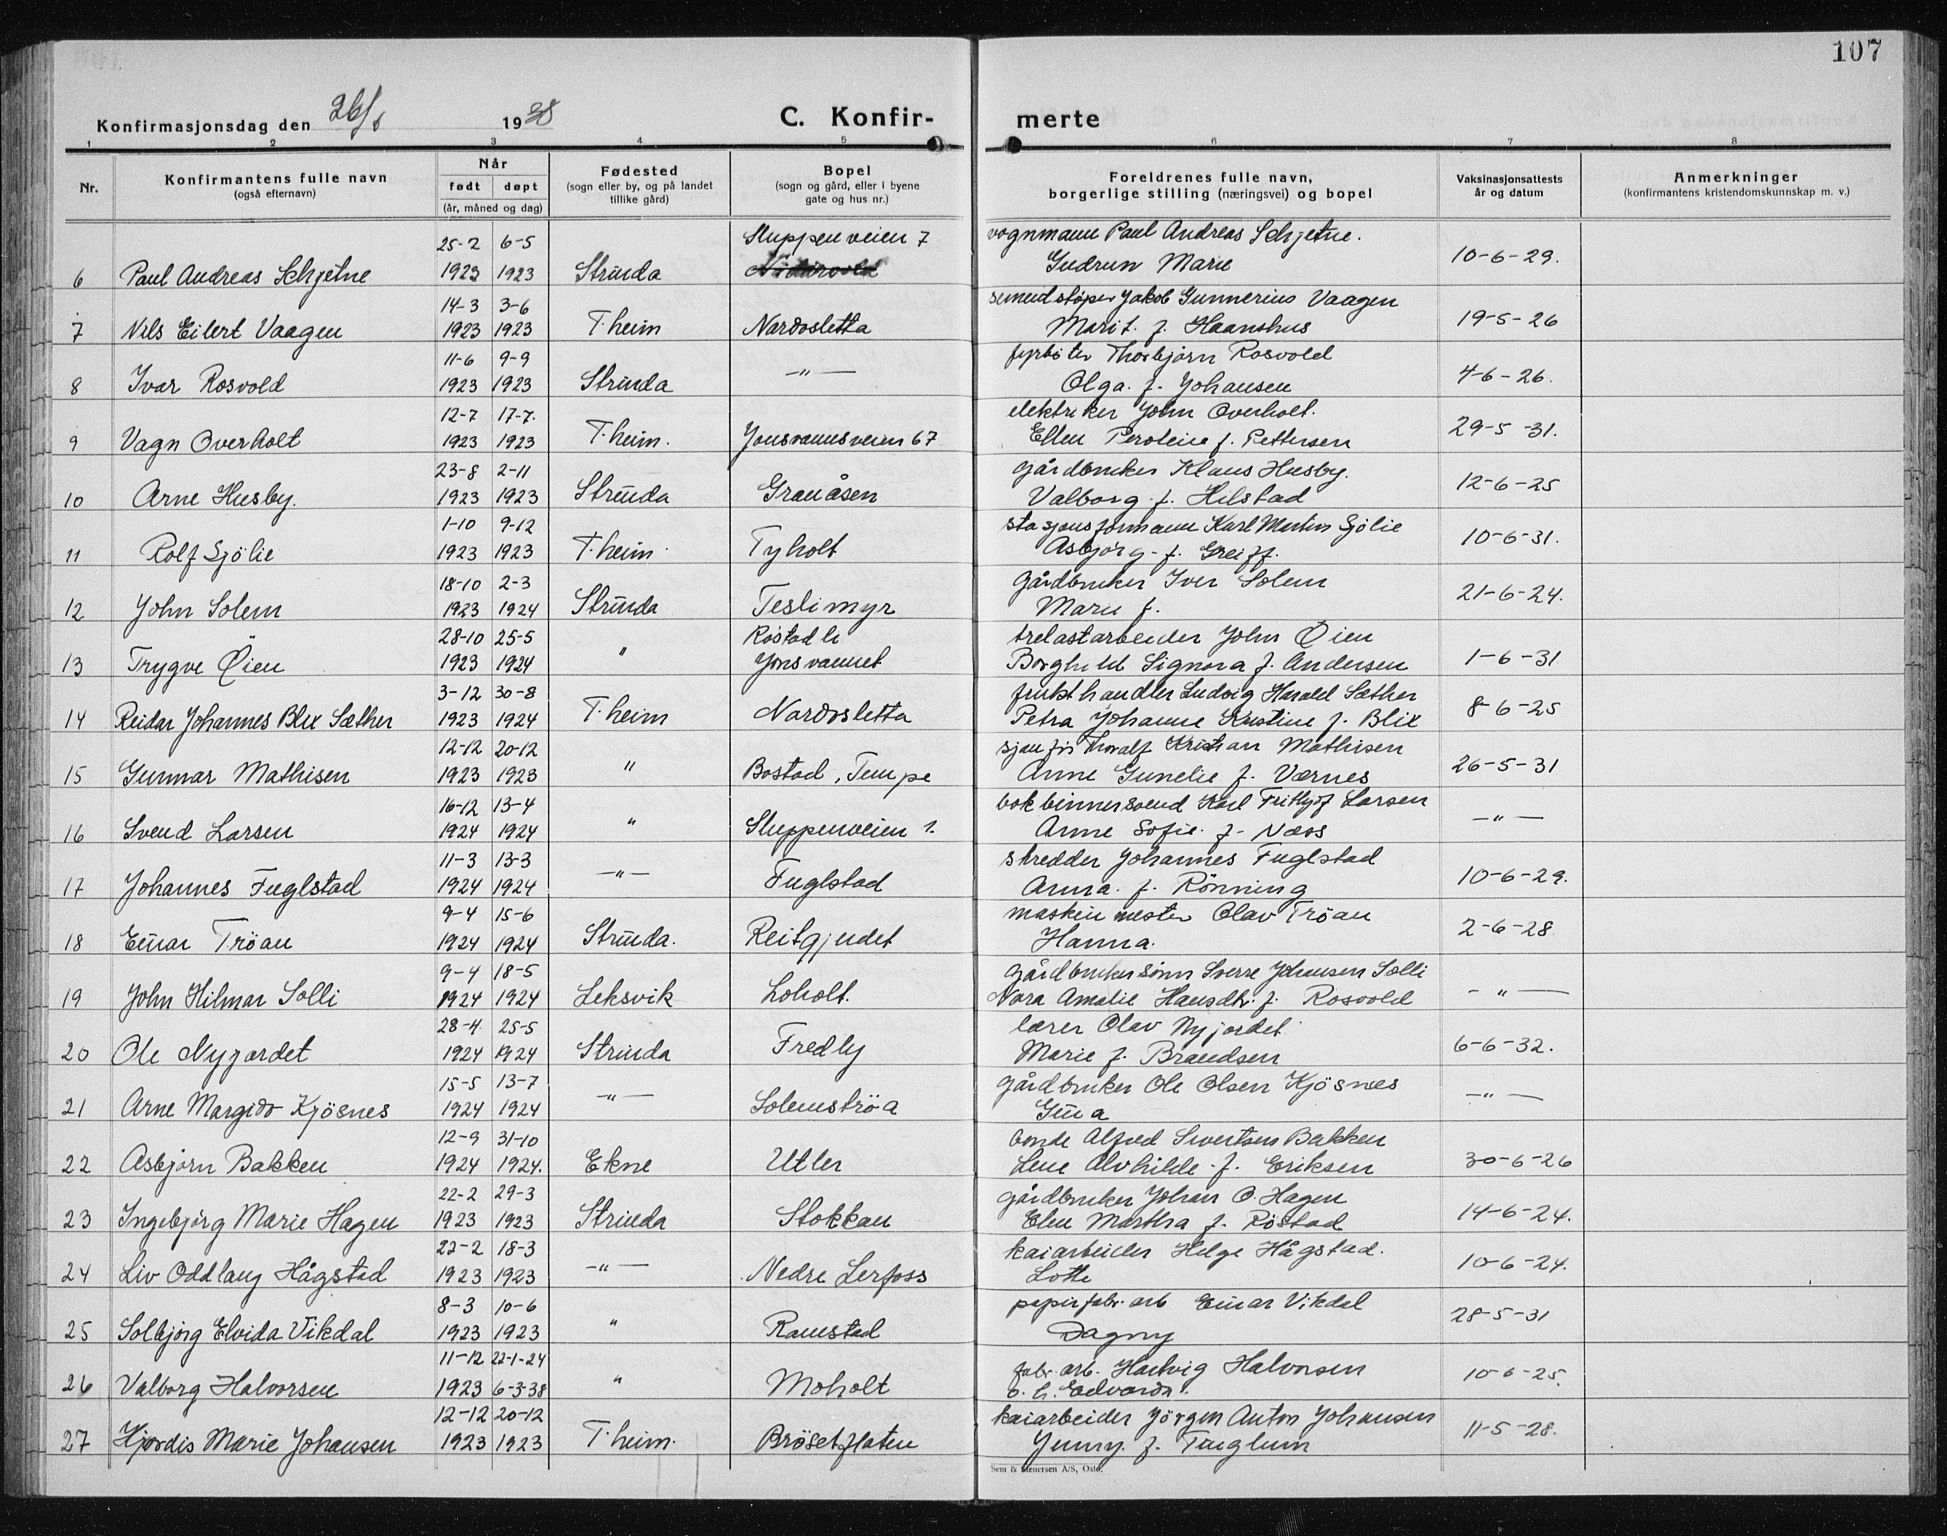 107
Konfirmasjonsdag den 26/6 1938
C. Konfir-
merte
1 2 3 4 5 6 7 8
Nr.
Konfirmantens fulle navn
(også efternavn)
Når
født døpt
(år, måned og dag)
Fødested
(sogn eller by, og på landet
tillike gård)
Bopel
(sogn og gård, eller i byene
gate og hus nr.)
Foreldrenes fulle navn,
borgerlige stilling (næringsvei) og bopel
Vaksinasjonsattests
år og datum
Anmerkninger
(konfirmantens kristendomskunnskap m. v.)
25-2 6-5 Sluppenveien 7 vognmann Paul Andreas Schjetne.
6 Paul Andreas Schjetne 1923 1923 Strinda Gudrun Marie 10-6-29.
14-3 3-6 sementstøper Jakob Gunnerius Vaagen
7 Nils Eilert Vaagen 1923 1923 T.heim Nardosletta Marit. f. Haanshus 19-5-26
11-6 9-9 fyrbøter Thorbjørn Rosvold
8 Ivar Rosvold 1923 1923 Strinda -"- Olga. f. Johansen 4-6-26.
12-7 17-7. elektriker John Overholt.
9 Vagn Overholt 1923 1923 T.heim. Jonsvannsveien 67 Ellen f. Pettersen 29-5-31.
23-8 2-11 gårdbruker Klaus Husby.
10 Arne Husby. 1923 1923 Strinda Granåsen Valborg f. Hilstad 12-6-25
1-10 9-12 stasjonsformann Karl Martin Sjölie
11 Rolf Sjölie 1923 1923 T.heim. Tyholt Asbjørg f. Greiff. 10-6-31.
18-10 2-3 Gårdbruker Iver Solem
12 John Solem 1923 1924 Strinda Teslimyr Marie f. 21-6-24.
28-10 25-5 Röstad li trelastarbeider John Öien
13 Trygve Öien 1923 1924 " Jonsvannet Borghild Signora f. Andersen 1-6-31
3-12 30-8 frukthandler Ludvig Harald Sæther
14 Reidar Johannes Blix Sæther 1923 1924 T.heim Nardosletta Petra Johanne Kristine f. Blix 8-6-25
12-12 20-12 sjauffør Thoralf Kristian Mathisen
15 Gunnar Mathisen 1923 1923 " Bostad, Tempe Anne Gunelie f. Værnes 26-5-31
16-12 13-4 bokbinnersvend Karl Fritjof Larsen
16 Svend Larsen 1924 1924 " Sluppenveien 1. Anne Sofie. f. Næss -"-
11-3 13-3 skredder Johannes Fuglstad
17 Johannes Fuglstad 1924 1924 -"- Fuglstad Anna. f. Rönning 10-6-29.
9-4 15-6 maskinmester Olav Tröan
18 Einar Tröan 1924 1924 Strinda. Reitgjerdet Hanna. 2-6-28
9-4 18-5 gårdbrukersönn Sverre Johansen Solli
19 John Hilmar Solli 1924 1924 Leksvik Loholt. Nora Amalie Hansdtr. f. Rosvold -"-
28-4 25-5 lærer Olav Nyjordet
20 Ole Nygardet 1924 1924 Strinda Fredly Marie f. Brandsen 6-6-32.
15-5 13-7 gårdbruker Ole Olsen Kjösnes
21 Arne Margido Kjösnes 1924 1924 -"- Solemströa Gina -"-
12-9 31-10 bonde Alfred Sivertsen Bakken
22 Asbjørn Bakken 1924 1924. Ekne Utler Lene Alvhilde f. Eriksen 30-6-26
22-2 29-3 gårdbruker Johan O. Hagen
23 Ingebjörg Marie Hagen 1923 1923 Strinda Stokkan Elen Martha f. Röstad 14-6-24.
22-2 18-3 kaiarbeider Helge Hågstad.
24 Liv Oddlaug Hågstad 1923 1923 -"- Nedre Lerfoss Lotte 10-6-24.
8-3 10-6 papirfabr. arb Einar Vikdal
25 Solbjörg Elvida Vikdal 1923 1923 " Ramstad Dagny 28-5-31
11-12 22-1-24 fabr. arb. Hartvig Halvorsen
26 Valborg Halvorsen 1923 6-3-38 " Moholt o. h. Edvarda. 10-6-25.
12-12 20-12 kaiarbeider Jörgen Anton Johansen
27 Hjördis Marie Johansen 1923 1923 T.heim. Brösetflaten Jenny. f. Fuglum 11-5-28.
Sem & Stenersen A/S, Oslo.